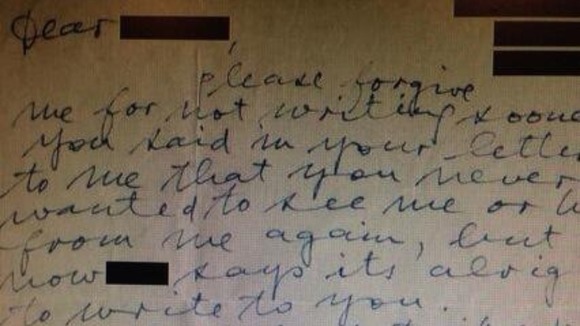 Dear ,
please forgive
me for not writing
you said in your
to me that you never
wanted to see me or
from me again, but
now says its
to write to you.